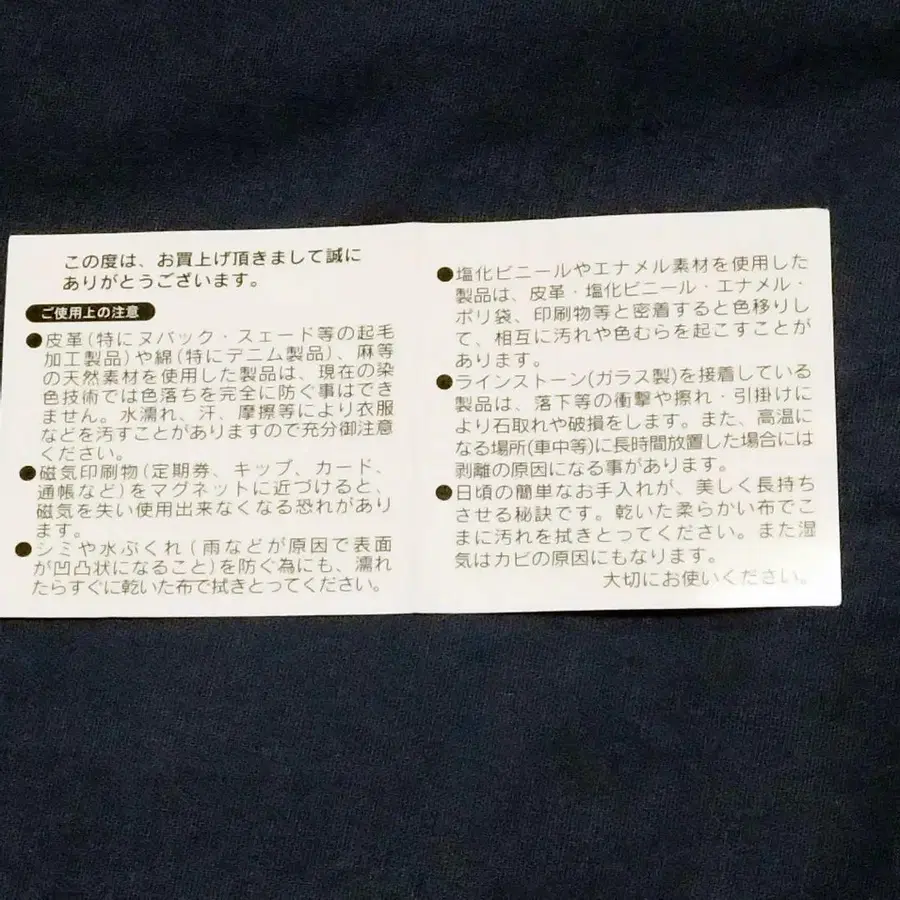 この度は、お買上げ頂きまして誠に
ありがとうございます。
ご使用上の注意
●皮革(特にヌバック・スエード等の起毛
加工製品)や綿(特にデニム製品)、麻等
の天然素材を使用した製品は、現在の染
色技術では色落ちを完全に防ぐ事はでき
ません。水濡れ、汗、摩擦等により衣服
などを汚すことがありますので充分御注意
ください。
●磁気印刷物(定期券、キップ、カード、
通帳など)をマグネットに近づけると、
磁気を失い使用出来なくなる恐れがあり
ます。
●シミや水ぶくれ(雨などが原因で表面
が凹凸状になること)を防ぐ為にも、濡れ
たらすぐに乾いた布で拭きとってください。
●塩化ビニールやエナメル素材を使用した
製品は、皮革・塩化ビニール・エナメル・
ポリ袋、印刷物等と密着すると色移りし
て、相互に汚れや色むらを起こすことが
あります。
●ラインストーン(ガラス製)を接着している
製品は、落下等の衝撃や擦れ・引掛けに
より石取れや破損をします。また、高温に
なる場所(車中等)に長時間放置した場合には
剥離の原因になる事があります。
●日頃の簡単なお手入れが、美しく長持ち
させる秘訣です。乾いた柔らかい布でこ
まに汚れを拭きとってください。また湿
気はカビの原因にもなります。
大切にお使いください。